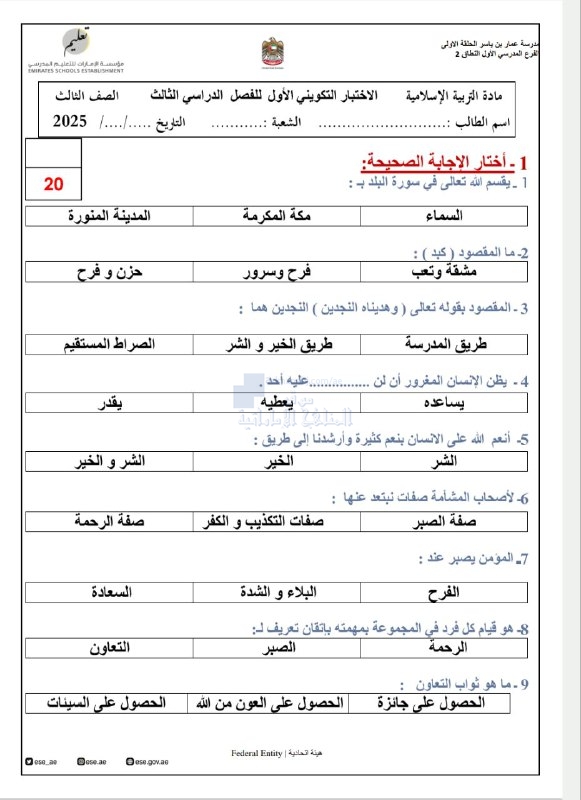 تعليم
مؤسسة الإمارات للتعليم المدرسي
EMIRATES SCHOOLS ESTABLISHMENT
مدرسة عمار بن ياسر الحلقة الاولى
الفرع المدرسي الأول النطاق 2
مادة التربية الإسلامية الاختبار التكويني الأول للفصل الدراسي الثالث الصف الثالث
اسم الطالب :............................ الشعبة :........... التاريخ ...../..../ 2025
20
1 - أختار الإجابة الصحيحة:
1 ـ يقسم الله تعالى في سورة البلد بـ :
السماء مكة المكرمة المدينة المنورة
2- ما المقصود ( كبد ) :
مشقة وتعب فرح وسرور حزن و فرح
3 - المقصود بقوله تعالى ( وهديناه النجدين ) النجدين هما :
طريق المدرسة طريق الخير و الشر الصراط المستقيم
4 - يظن الإنسان المغرور أن لن ...............عليه أحد .
يساعده يعطيه يقدر
المناهج الإماراتية
5- أنعم الله على الانسان بنعم كثيرة وأرشدنا إلى طريق :
الشر الخير الشر و الخير
6- لأصحاب المشأمة صفات نبتعد عنها :
صفة الصبر صفات التكذيب و الكفر صفة الرحمة
7- المؤمن يصبر عند :
الفرح البلاء و الشدة السعادة
8- هو قيام كل فرد في المجموعة بمهمته بإتقان تعريف لـ:
الرحمة الصبر التعاون
9 - ما هو ثواب التعاون :
الحصول على جائزة الحصول على العون من الله الحصول على السيئات
هيئة اتحادية | Federal Entity
ese_ae ese.ae ese.gov.ae